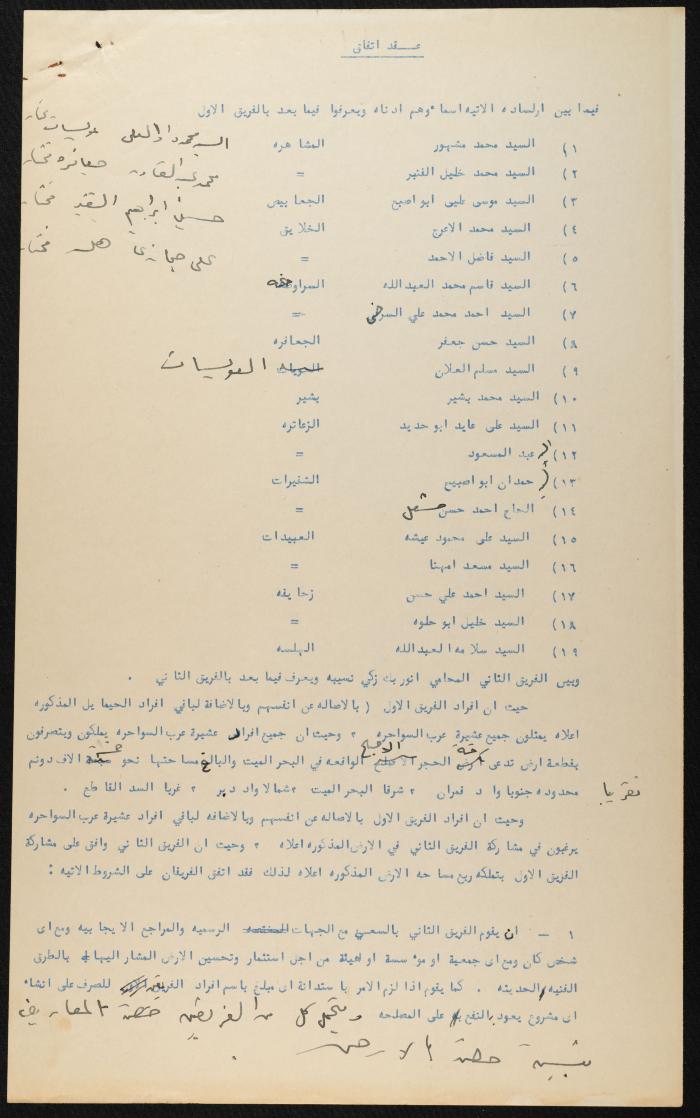 عـقد اتفاق
فيما بين ارلساده الاتيه اسماءوهم ادناه ويعرفوا فيما بعد بالفريق الاول
١) السيد محمد مشهور المشاهره
٢) السيد محمد خليل الفنير =
٣) السيد موسى عليى ابو اصبح الجعابيص
٤) السيد محمد الاعرج الخلايق
٥) السيد فاضل الاحمد =
٦) السيد قاسم محمد العبدالله السراوخه
٧) السيد احمد محمد علي السرخي =
٨) السيد حسن جعفر الجعافره
٩) السيد مسلم العلان العويسات
١٠) السيد محمد بشير بشير
١١) السيد على عايد ابو حديد الزعاتره
١٢) عبد المسعود =
١٣) حمدان ابو اصبيح الشقيرات
١٤) الحاج احمد حسن مشعل =
١٥) السيد على محمود عيشه العبيدات
١٦) السيد مسعد امهنا =
١٧) السيد احمد علي حسن زحايفه
١٨) السيد خليل ابو حلوه =
١٩) السيد سلامه العبدالله الهلسه
السيد محمد داود العلى عويسات
حسين ابراهيم
على حجازي
وبين الفريق الثاني المحامي انور بك زكي نسيبه ويعرف فيما بعد بالفريق الثاني .
حيث ان افراد الفريق الاول ( بالاصاله عن انفسهم وبالاضافة لباقي افراد الحمايل المذكوره
اعلاه يمثلون جميع عشيرة عرب السواحره ؟ وحيث ان جميع افراد عشيرة عرب السواحره يملكون ويتصرفون
بقطعة ارض تدعى رقة الحجر الاصبح الواقعه في البحر الميت والبالغ مساحتها نحو ستة الاف دونم
تقريبا محدوده جنوبا واد قمران ؟ شرقا البحر الميت ؟ شمالا واد دبر ؟ غربا السد القاطع .
وحيث ان افراد الفريق الاول بالاصاله عن انفسهم وبالاضافه لباقي افراد عشيرة عرب السواحره
يرغبون في مشاركة الفريق الثاني في الارض المذكوره اعلاه ؟ وحيث ان الفريق الثاني وافق على مشاركة
الفريق الاول بتملكه ربع مساحه الارض المذكوره اعلاه لذلك فقد اتفق الفريقان على الشروط الاتيه :
١ - ان يقوم الفريق الثاني بالسعي مع الجهات المختصه الرسميه والمراجع الايجابيه ومع اى
شخص كان ومع اى جمعية او موءسسة او هيئة من اجل استثمار وتحسين الارض المشار اليها بالطرق
الفنيه الحديثه . كما يقوم اذا لزم الامر باستدانة اى مبلغ باسم افراد الفريقين للصرف على انشاء
اى مشروع يعود بالنفع على المصلحه ويتحمل كل من الفريقين حصة بالمصاريف
بنسبة حصته بالارض